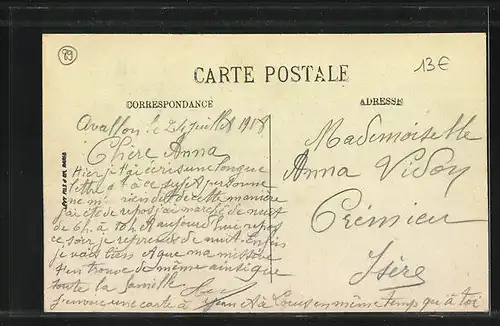 89
13€
CARTE POSTALE
CORRESPONDANCE
ADRESSE
Avallon le 24 juillet 1918
Chère Anna
Hier je t'ai écris une longue
lettre et à ce sujet personne
ne m' rien dit de cette manière
j'ai été de repos j'ai marché de nuit
de 6h à 10h Aujourd'hui repos
ce soir je reprends de nuit. Enfin
je vais bien et que ma missive
t'en trouve de même ainsi que
toute la famille
j'envoie une carte à Jean et à Louis en même temps qu'à toi
Mademoiselle
Anna Vidon
Crémieu
Isère
LÉVY FILS & Cie, PARIS